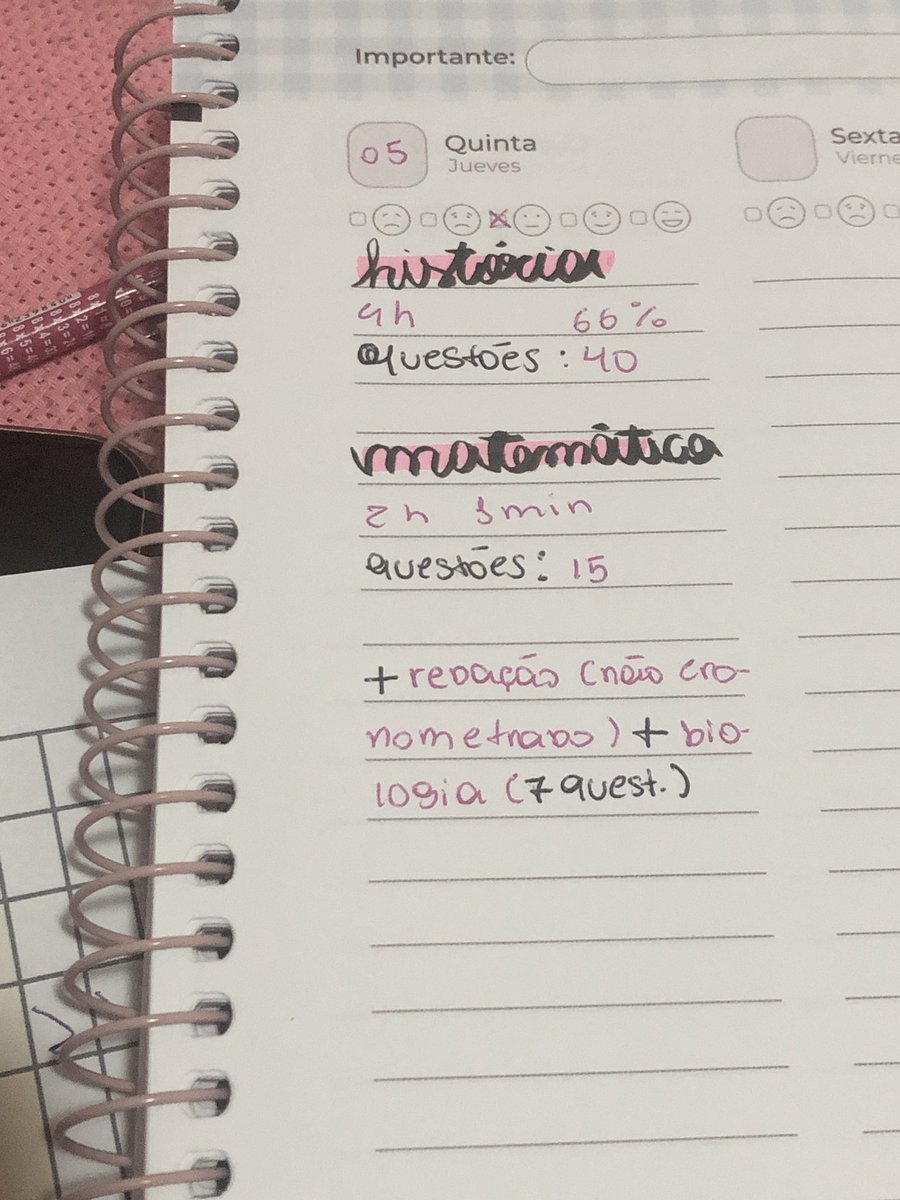 Importante:
05 Quinta
Jueves
Sexta
Vierne
história
4h 66%
questões: 40
matemática
2h 3min
questões: 15
+ redação (não cro-
nometrado) + bio-
logia (7 quest.)